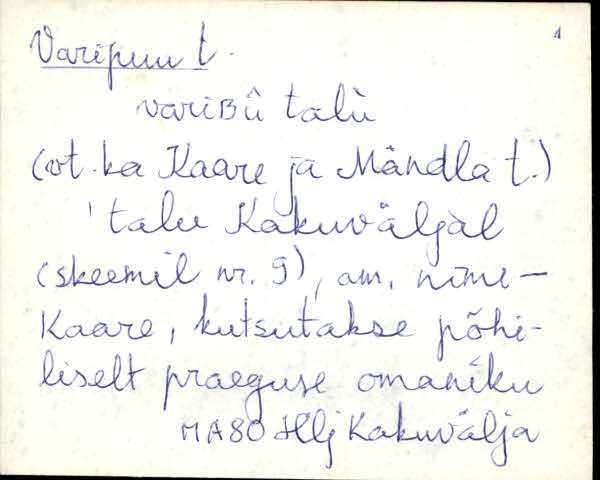 1
Varipuu t.
variBù talù
(vt. ka Kaare ja Mändla t.)
'talu Kakuväljal
(skeemil nr. 9), am. nime-
Kaare, kutsutakse põhi-
liselt praeguse omaniku
MA80 Hlj Kakuvälja